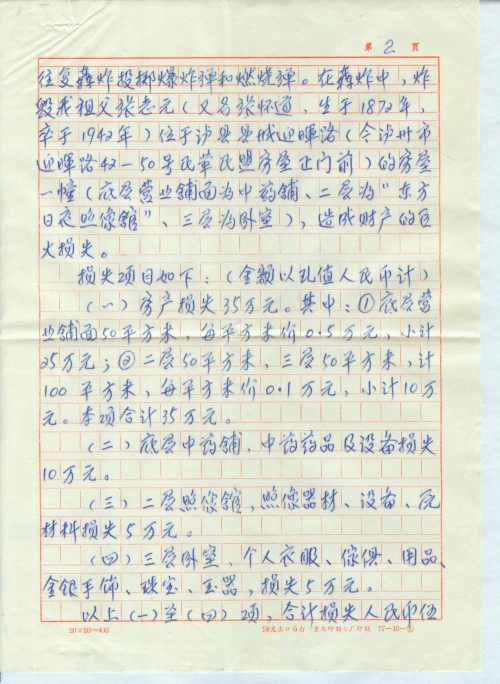 第 2 页
往复轰炸投掷爆炸弹和燃烧弹。在轰炸中，炸
毁我祖父张志元（又名张怀道，生于1872年，
卒于1942年）位于泸县县城迎晖路（今泸州市
迎晖路42—50号民革民盟房屋正门前）的房屋
一幢（底层营业铺面为中药铺、二层为“东方
日夜照像馆”、三层为卧室），造成财产的巨
大损失。
损失项目如下：（金额以现值人民币计）
（一）房产损失35万元。其中：①底层营
业铺面50平方米，每平方米价0.5万元，小计
25万元；②二层50平方米，三层50平方米，计
100平方米，每平方米价0.1万元，小计10万
元。本项合计35万元。
（二）底层中药铺，中药药品及设备损失
10万元。
（三）二层照像馆，照像器材、设备、原
材料损失5万元。
（四）三层卧室，个人衣服、傢俱、用品、
金银手饰、珠宝、玉器，损失5万元。
以上（一）至（四）项，合计损失人民币伍
20×20=400
印刷 77—10—③